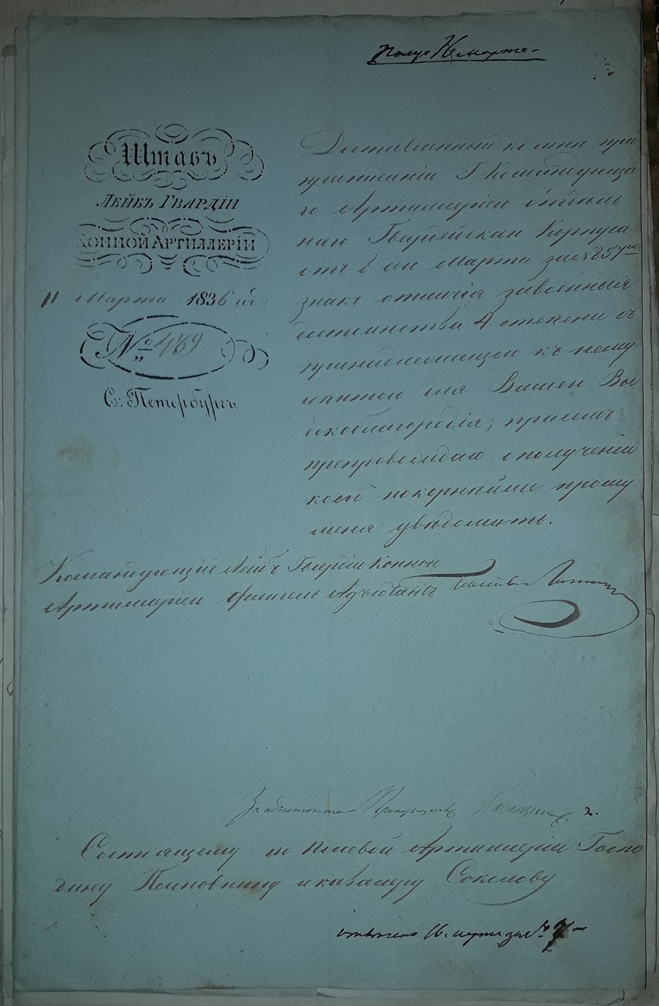 получ 16 марта
Штабъ
Лейбъ Гвардіи
Конной Артиллеріи
11 Марта 1836 года
№ 489
С: Петербургъ.
Доставленный ко мнѣ при
предписаніи Г. Командующа
го Артиллеріею Отдѣль
наго Гвардейскаго Корпуса
отъ 8 сего Марта за № 857
знакъ отличія за военныя
достоинства 4 степени съ
принадлежащею къ нему
для Вашего Вы
сокоблагородія; при семъ
препровождаю о полученіи
коего покорнѣйше прошу
меня увѣдомить.
Командующій Лейбъ Гвардіи Конною
Артиллеріею Флигель Адъютантъ
За адъютанта Прапорщикъ
Состоящему по полевой Артиллеріи Госпо
дину Полковнику и кавалеру Соколову
16 марта за №